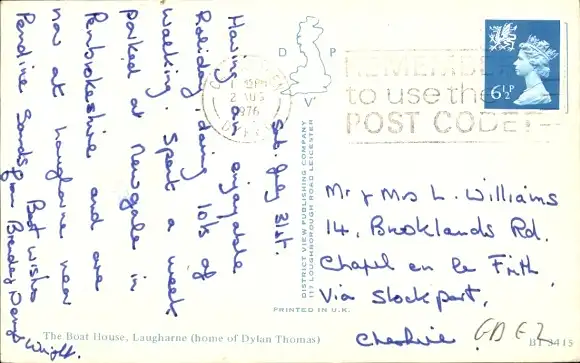 Sat. July 31st.
Having an enjoyable
Holiday, doing lots of
walking. Spent a week
parked at Newgale in
Pembrokeshire and are
now at Laugharne near
Pendine Sands.
Best Wishes
from
Wright.
D P
V
2 AUG
1976
REMEMBER
to use the
POST CODE
6½P
DISTRICT VIEW PUBLISHING COMPANY
117 LOUGHBOROUGH ROAD LEICESTER
PRINTED IN U.K.
Mr & Mrs L. Williams
14, Brooklands Rd.
Chapel en le Frith
Via Stockport,
Cheshire
The Boat House, Laugharne (home of Dylan Thomas)
BT 3415